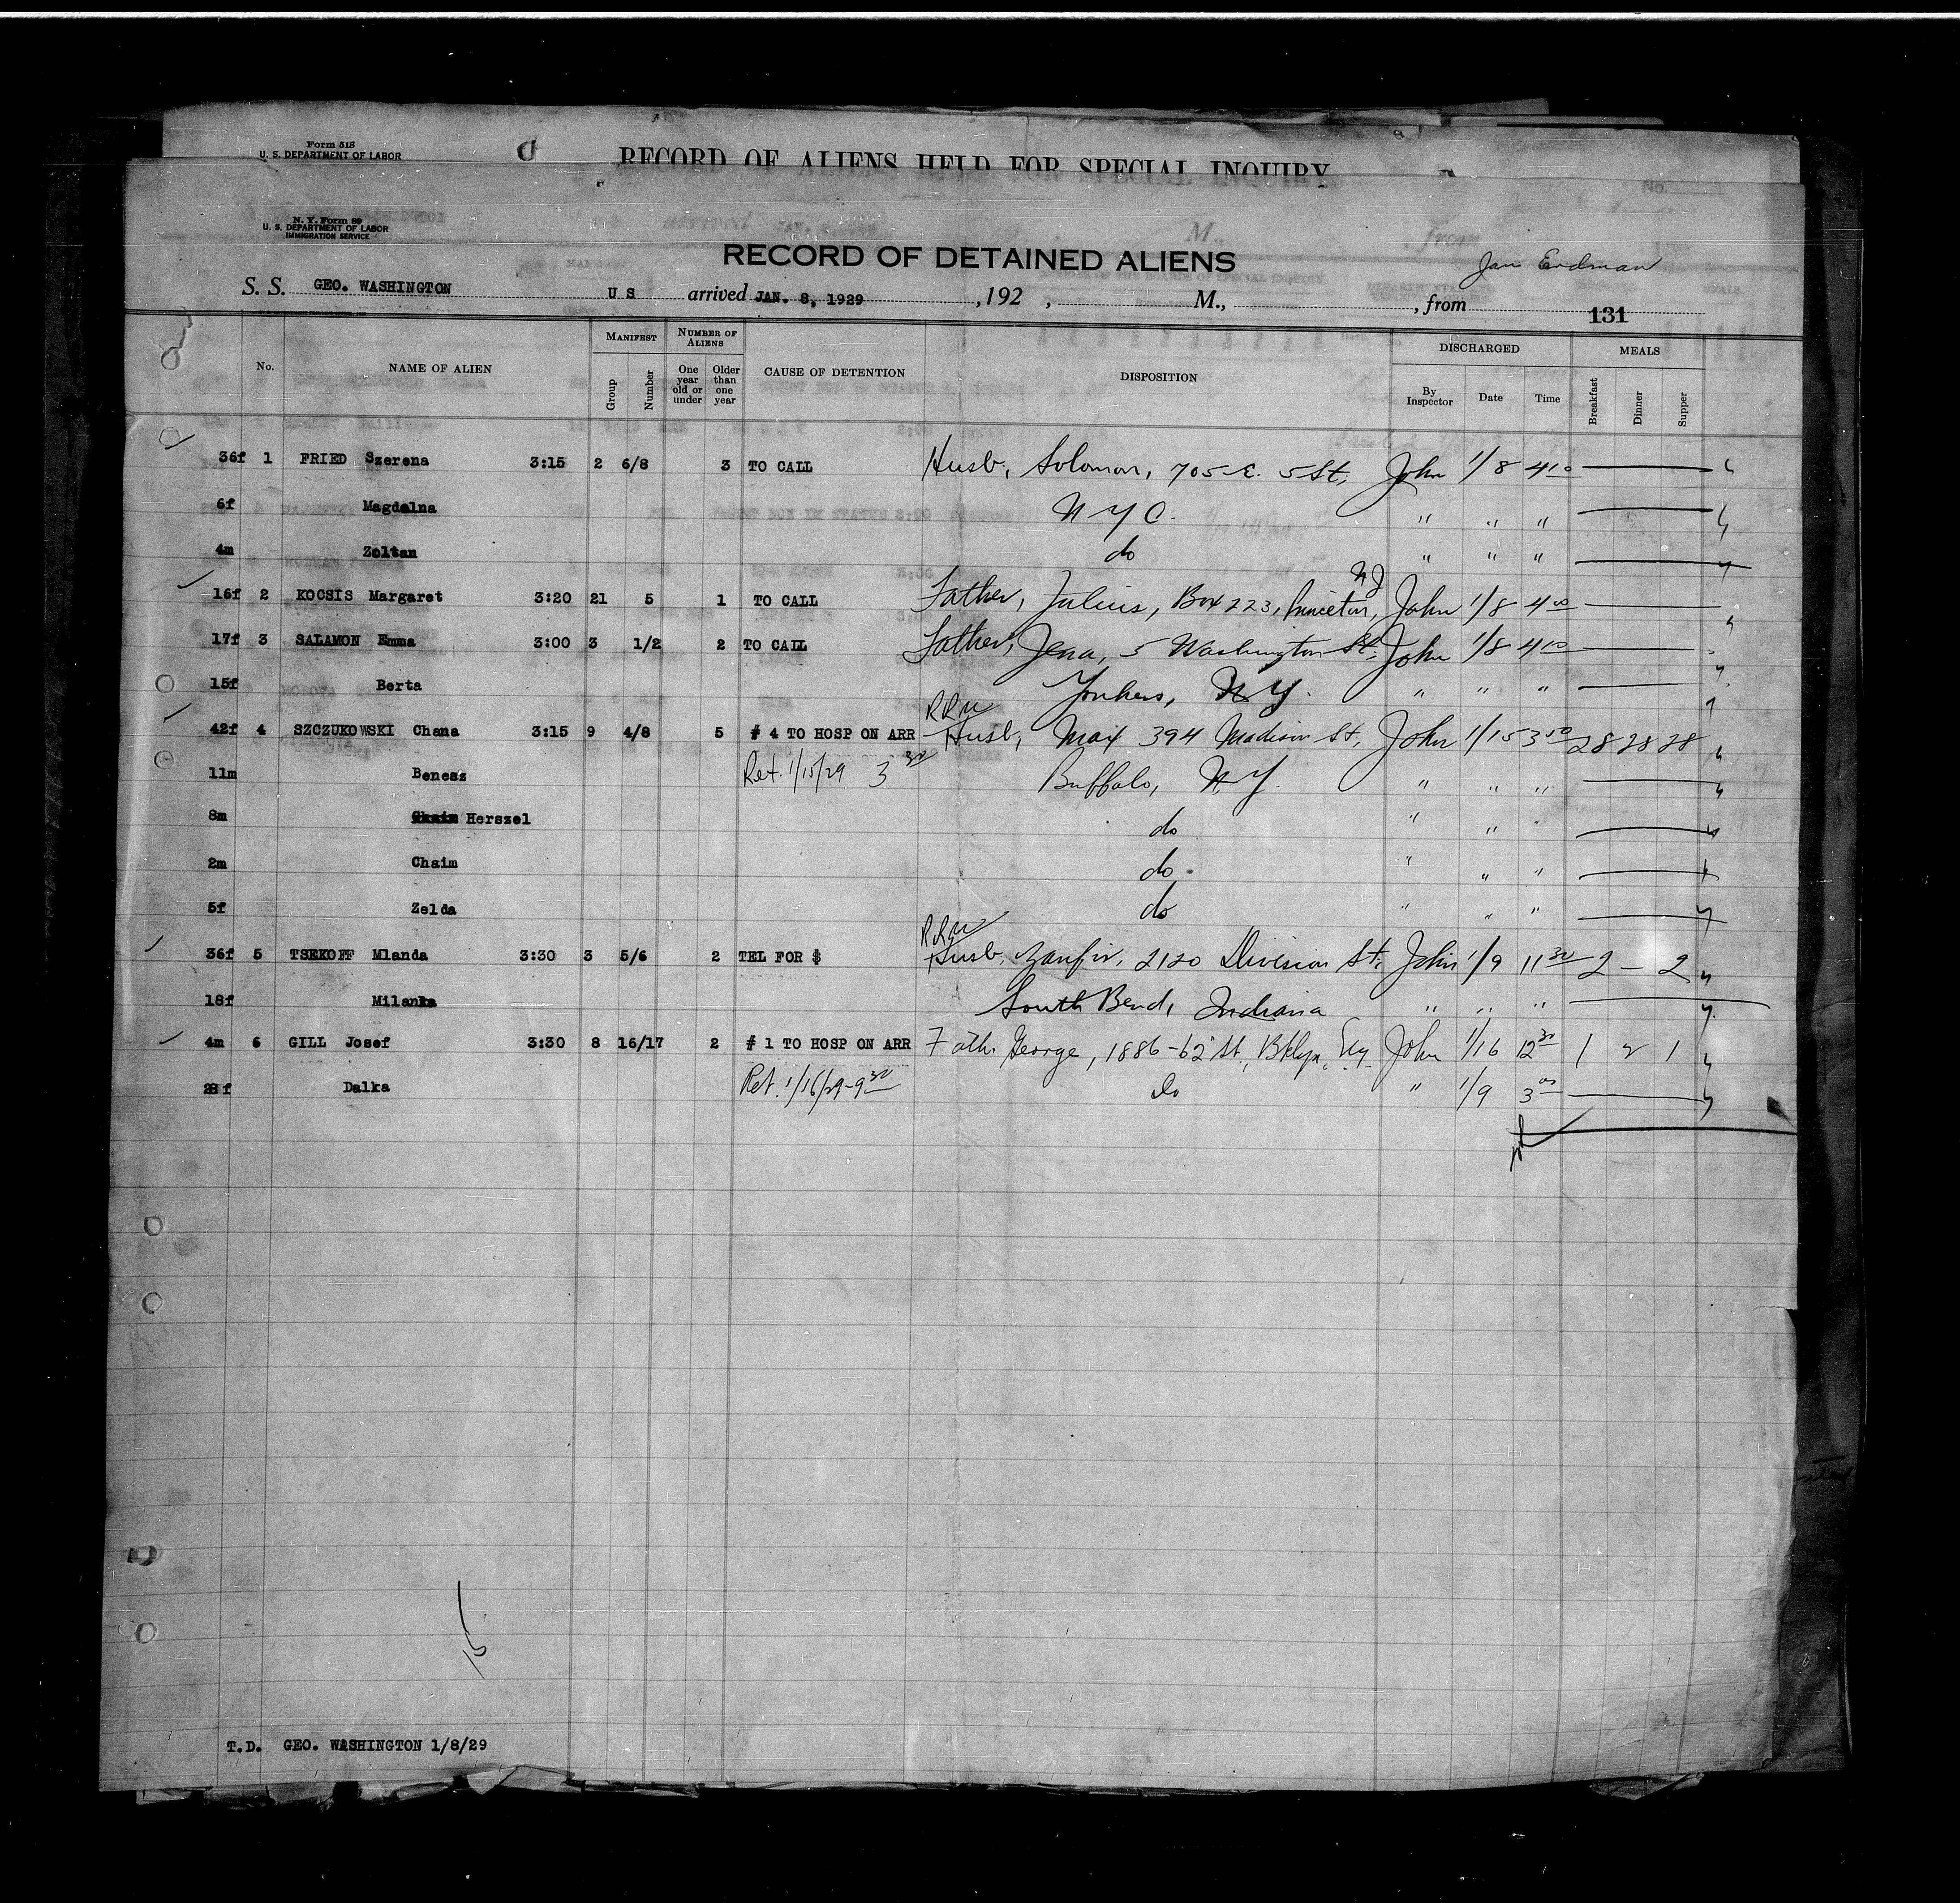 Form 518
U. S. DEPARTMENT OF LABOR
RECORD OF ALIENS HELD FOR SPECIAL INQUIRY
N. Y. Form 89
U. S. DEPARTMENT OF LABOR
IMMIGRATION SERVICE
RECORD OF DETAINED ALIENS
Jan Erdman
S. S. GEO. WASHINGTON US arrived JAN. 8, 1929 , 192 , M., , from 131
No. NAME OF ALIEN MANIFEST Group Number NUMBER OF ALIENS One year old or under Older than one year CAUSE OF DETENTION DISPOSITION DISCHARGED By Inspector Date Time MEALS Breakfast Dinner Supper
36f 1 FRIED Szerena 3:15 2 6/8 3 TO CALL Husb, Solomon, 705 E. 5 St, John 1/8 4 10
6f Magdalna N Y C. " " "
4m Zoltan do " " "
16f 2 KOCSIS Margaret 3:20 21 5 1 TO CALL Father, Julius, Box 223, Princeton, N J John 1/8 4 00
17f 3 SALAMON Emma 3:00 3 1/2 2 TO CALL Father, Jena, 5 Washington St, John 1/8 4 10
15f Berta Yonkers, N Y. " " "
RRW
42f 4 SZCZUKOWSKI Chana 3:15 9 4/8 5 # 4 TO HOSP ON ARR Husb, Max 394 Madison St, John 1/15 3 50 28 28 28
11m Benesz Ret. 1/15/29 3 30 Buffalo, N Y. " " "
8m Chaim Herszel do " " "
2m Chaim do " " "
5f Zelda do " " "
RRW
36f 5 TSEKOFF Mlanda 3:30 3 5/6 2 TEL FOR $ Husb, Zanfir, 2120 Division St, John 1/9 11 30 2 - 2
18f Milanka South Bend, Indiana " " "
4m 6 GILL Josef 3:30 8 16/17 2 # 1 TO HOSP ON ARR Fath. George, 1886-62 St, Bklyn, John 1/16 12 30 1 2 1
Dalka Ret. 1/16/29-9 30 Do " 1/9 3 00
15
T.D. GEO. WASHINGTON 1/8/29